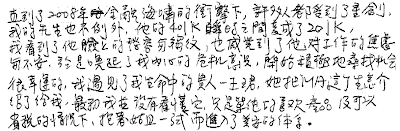 直到2008年金融海嘯的衝擊下,許多人都受到了重創,
我的先生也不例外,他的401K瞬時之間變成了201K,
我看到了他臉上的擔憂和殘紋,也感覺到了他對工作的焦慮
和不安,於是喚起了我內心的危機意識,開始積極地尋找機會
很幸運的,我遇見了我生命中的貴人一王珺,她把這門生意介
紹了給我,最初我並沒有看懂它,只是單純的喜歡產品,沒可以
省錢的情況下,抱著姑且一試而進入了美好的体系。